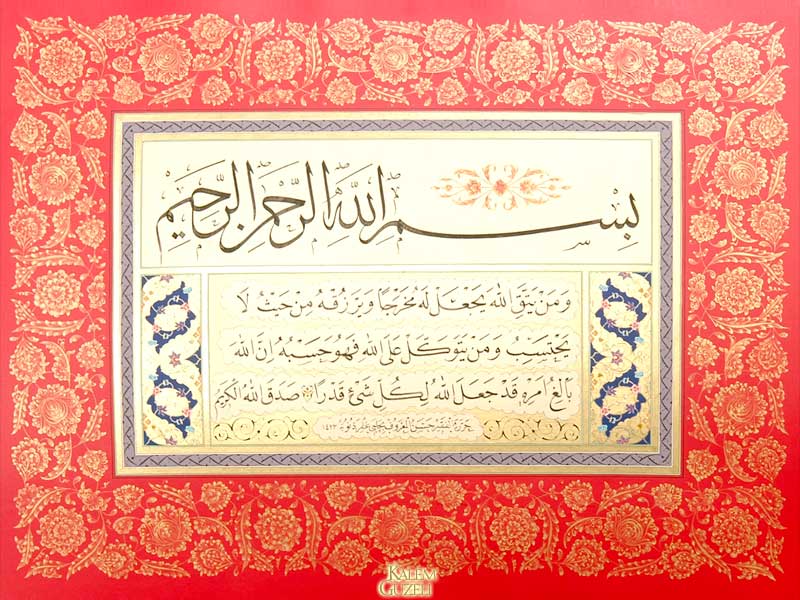 بِسْمِ اللهِ الرَّحْمٰنِ الرَّحِيمِ
وَمَنْ يَتَّقِ اللهَ يَجْعَلْ لَهُ مَخْرَجًا وَيَرْزُقْهُ مِنْ حَيْثُ لَا
يَحْتَسِبُ وَمَنْ يَتَوَكَّلْ عَلَى اللهِ فَهُوَ حَسْبُهُ إِنَّ اللهَ
بَالِغُ أَمْرِهِ قَدْ جَعَلَ اللهُ لِكُلِّ شَيْءٍ قَدْرًا صَدَقَ اللهُ الْكَرِيمُ
KALEM
GÜZELİ